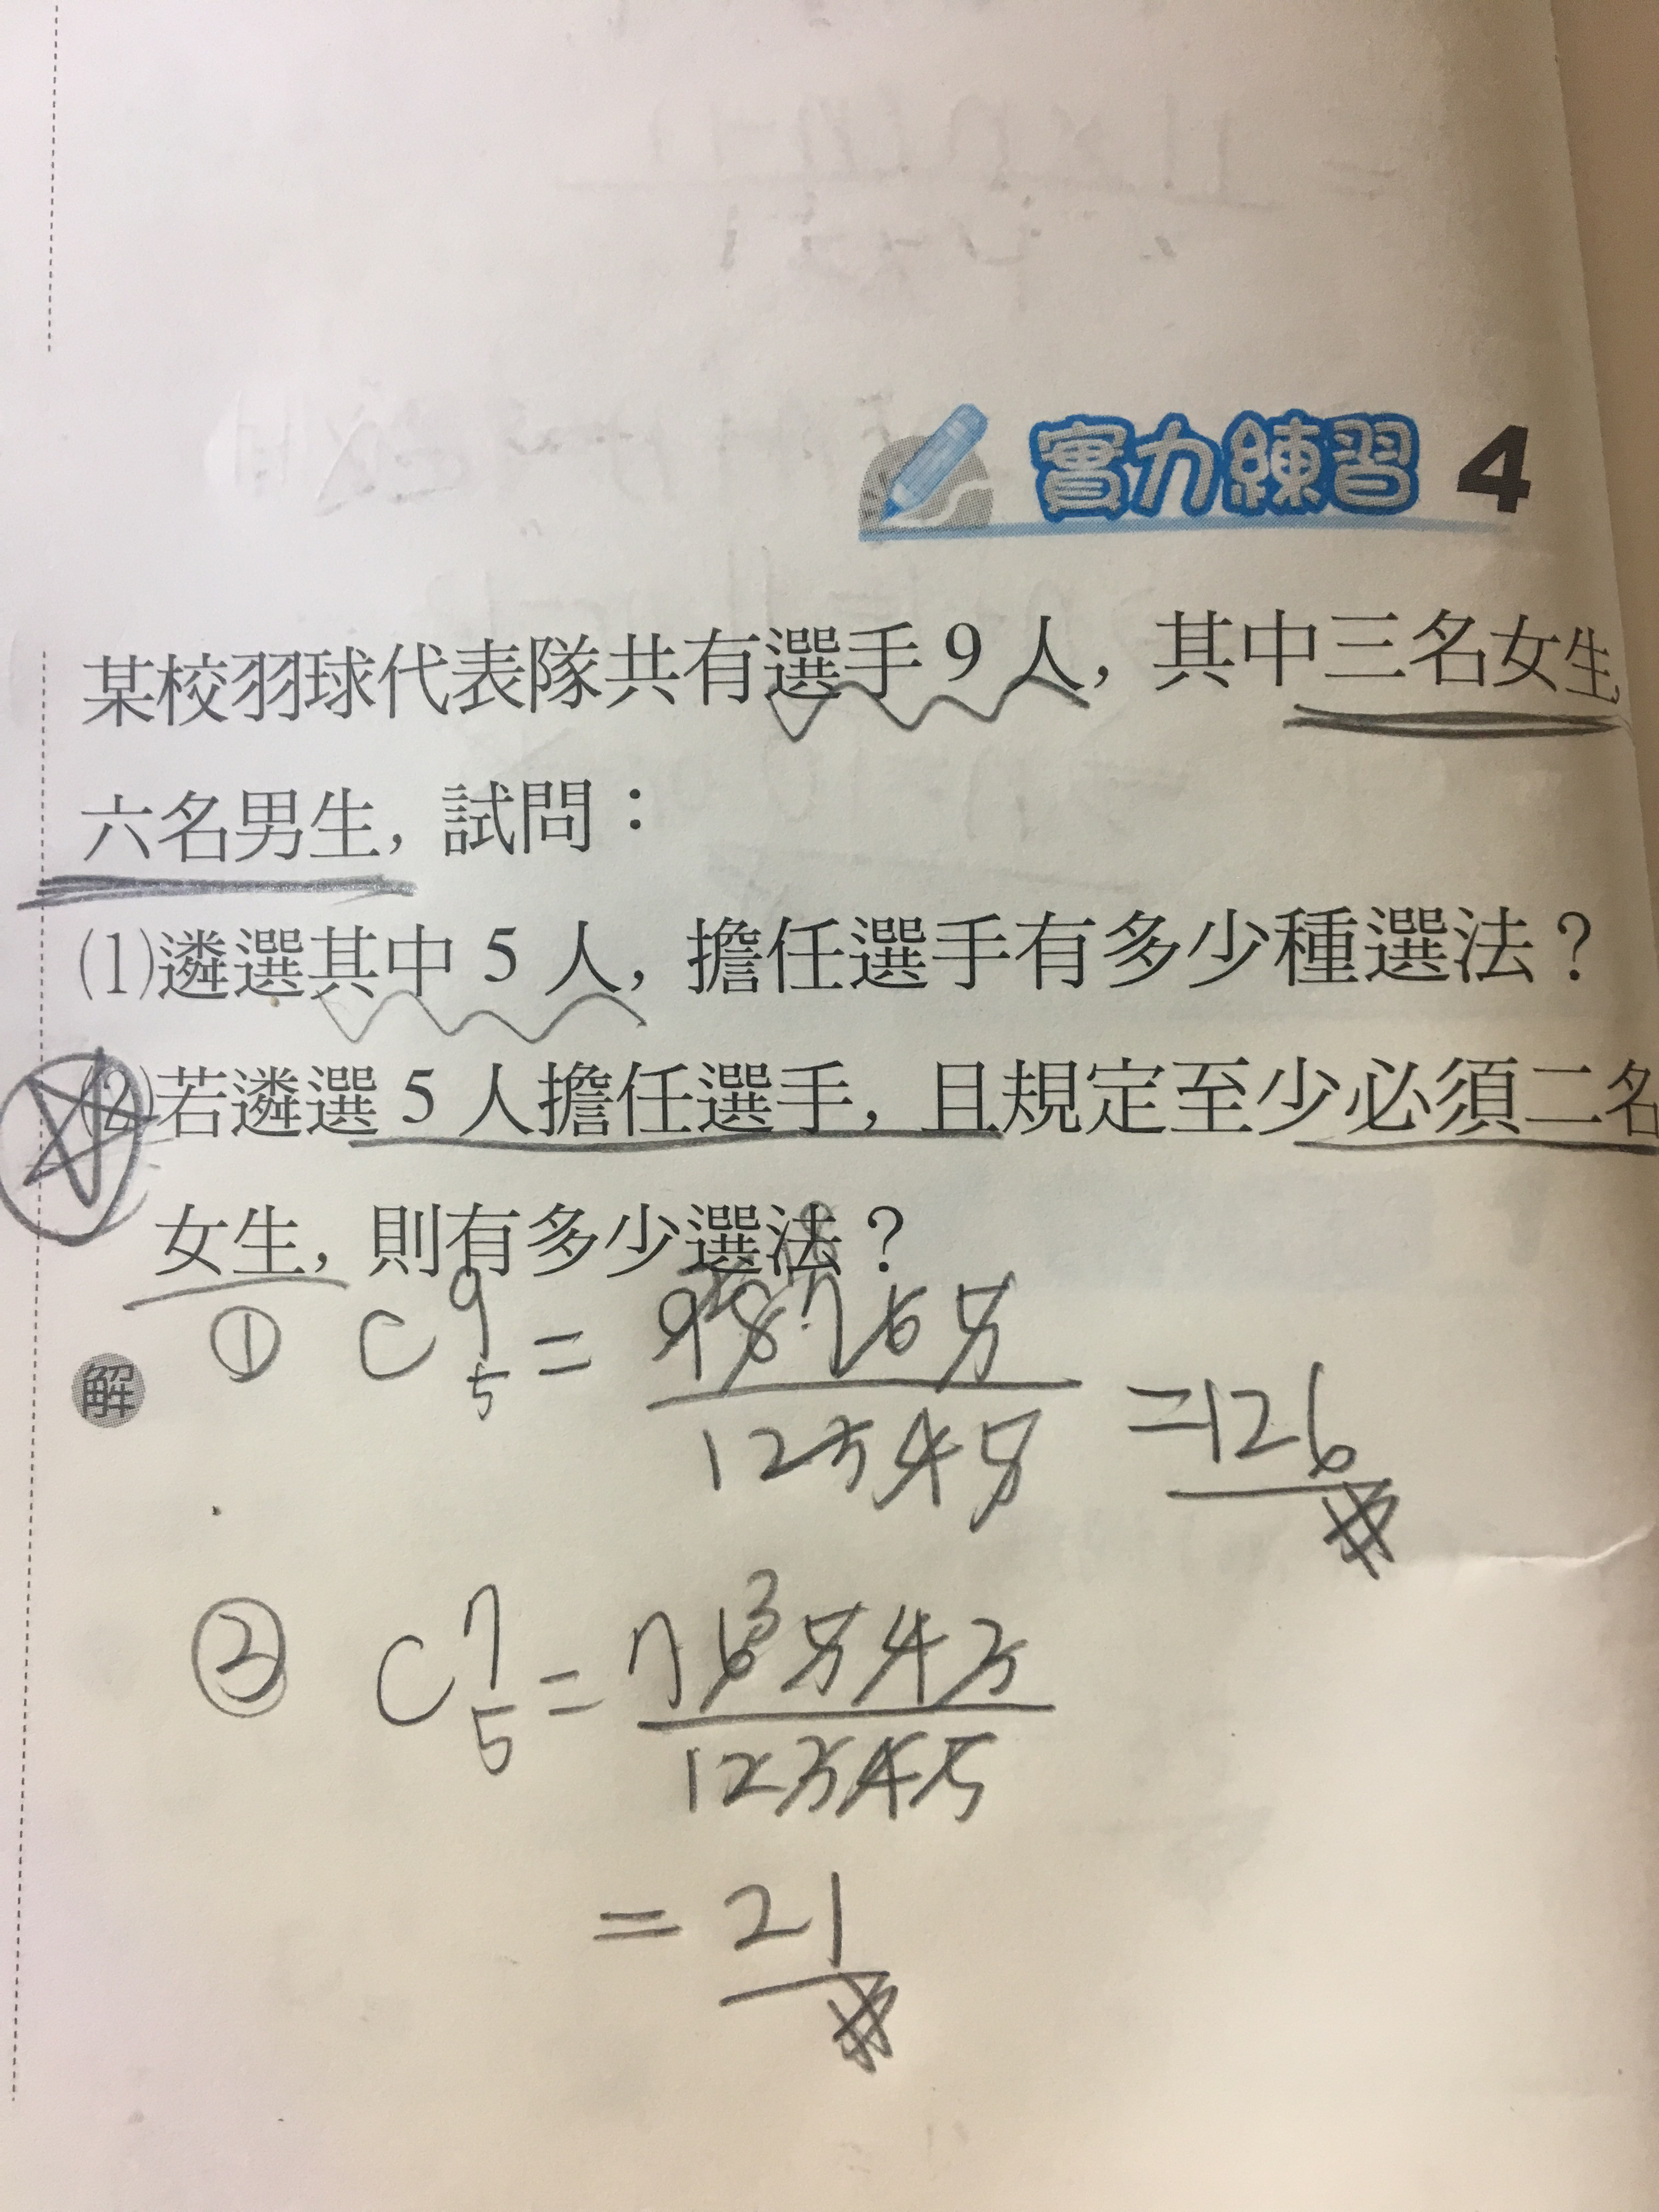 實力練習 4
某校羽球代表隊共有選手 9 人, 其中三名女生
六名男生, 試問:
(1)遴選其中 5 人, 擔任選手有多少種選法?
(2)若遴選 5 人擔任選手, 且規定至少必須二名
女生, 則有多少選法?
解
① C 9 5 = 9 8 7 6 5 / 1 2 3 4 5 = 126
② C 7 5 = 7 6 5 4 3 / 1 2 3 4 5
= 21